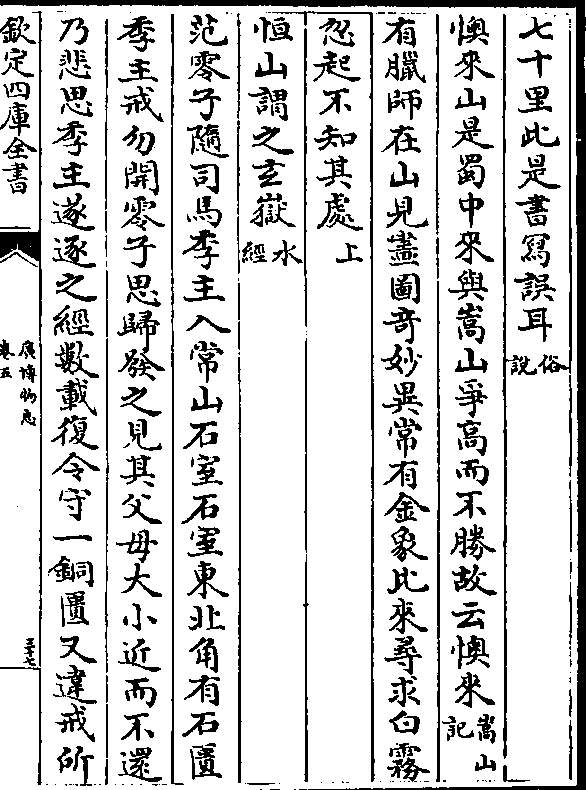 七十里此是書寫誤耳俗說
懊來山是蜀中來與嵩山爭高而不勝故云懊來嵩山記
有臘師在山見畫圖竒妙異常有金象比來尋求白霧
忽起不知其處上
恒山謂之玄嶽水經
范零子隨司馬季主入常山石室石室東北角有石匱
季主戒勿開零子思歸發之見其父母大小近而不還
乃悲思季主遂逐之經數載復令守一銅匱又違戒所
欽定四庫全書
廣博物志
卷五
三十七